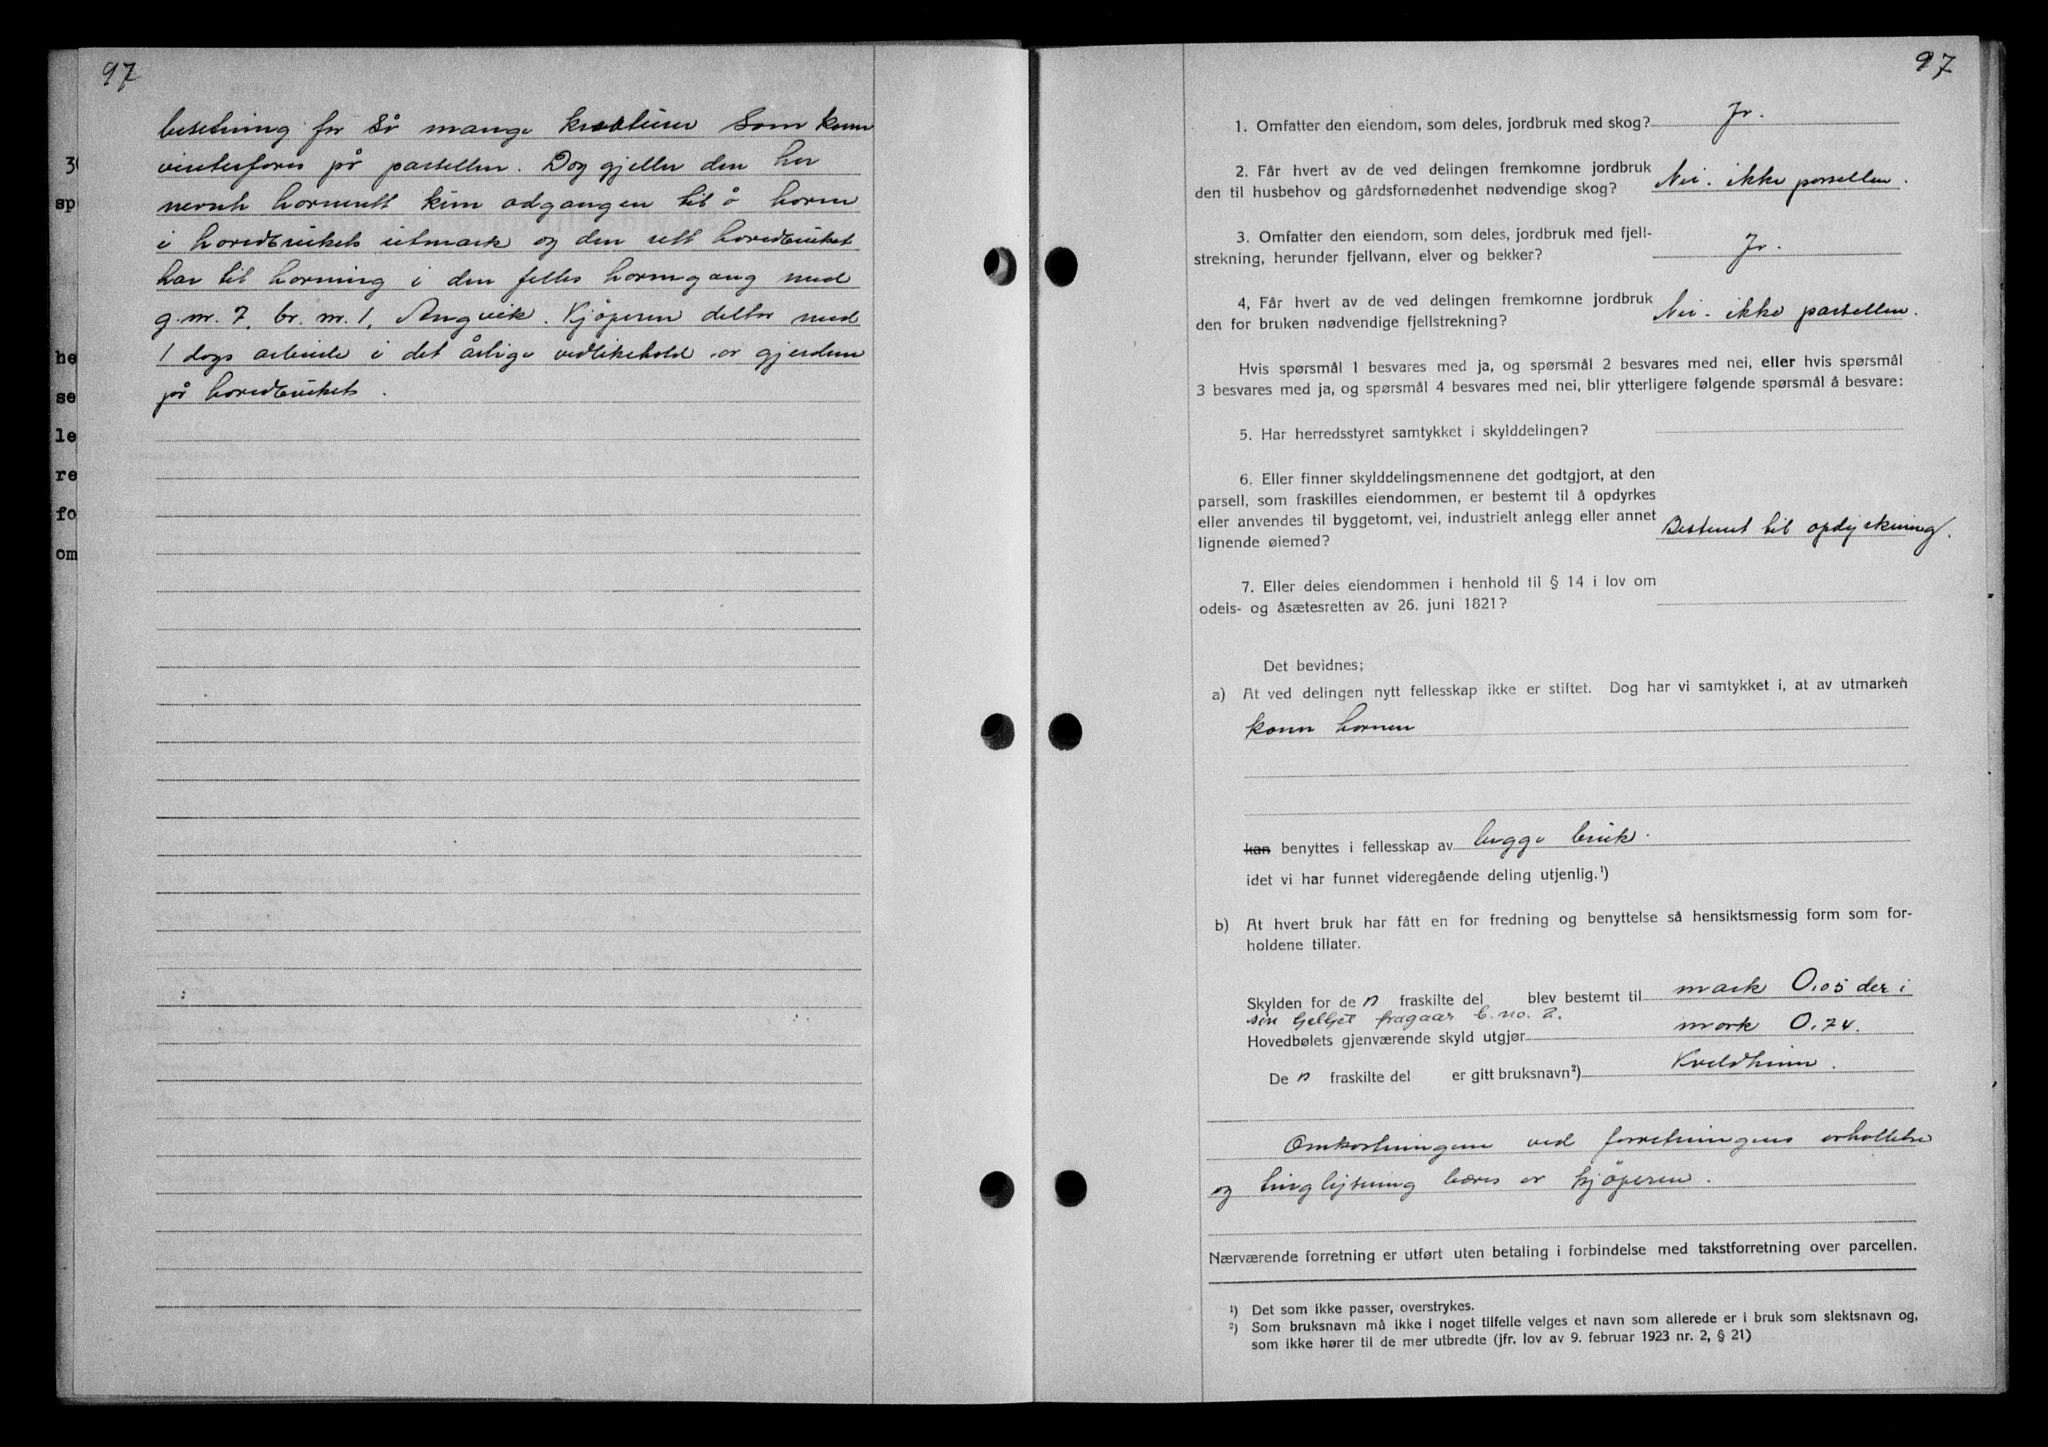 97
besetning for så mange kreaturer som kann
vinterfores på parsellen. Dog gjeller den her
nevnte havnerett kun adgangen til å havne
i hovedbrukets utmark og den rett hovedbruket
har til havning i den felles havnegang med
g.nr. 7, br. nr. 1, Angvik. Kjöperen deltar med
1 dags arbeide i det årlige vedlikehold av gjerdene
på hovedbruket.
3
sp
he
se
le
re
fo
om
97
1. Omfatter den eiendom, som deles, jordbruk med skog? Ja.
2. Får hvert av de ved delingen fremkomne jordbruk
den til husbehov og gårdsfornødenhet nødvendige skog? Nei. ikke parsellen.
3. Omfatter den eiendom, som deles, jordbruk med fjell-
strekning, herunder fjellvann, elver og bekker? Ja.
4, Får hvert av de ved delingen fremkomne jordbruk
den for bruken nødvendige fjellstrekning? Nei. ikke parsellen.
Hvis spørsmål 1 besvares med ja, og spørsmål 2 besvares med nei, eller hvis spørsmål
3 besvares med ja, og spørsmål 4 besvares med nei, blir ytterligere følgende spørsmål å besvare:
5. Har herredsstyret samtykket i skylddelingen?
6. Eller finner skylddelingsmennene det godtgjort, at den
parsell, som fraskilles eiendommen, er bestemt til å opdyrkes
eller anvendes til byggetomt, vei, industrielt anlegg eller annet
lignende øiemed? Bestemt til opdyrkning.
7. Eller deles eiendommen i henhold til § 14 i lov om
odels- og åsætesretten av 26. juni 1821?
Det bevidnes;
a) At ved delingen nytt fellesskap ikke er stiftet. Dog har vi samtykket i, at av utmarken
kann havnen
kan benyttes i fellesskap av begge bruk.
idet vi har funnet videregående deling utjenlig.¹)
b) At hvert bruk har fått en for fredning og benyttelse så hensiktsmessig form som for-
holdene tillater.
Skylden for den fraskilte del blev bestemt til mark 0,05 der i
sin helhet fragaar b.no. 2.
Hovedbølets gjenværende skyld utgjør mark 0,74.
Den fraskilte del er gitt bruksnavn²) Kveldheim.
Omkostningene ved forretningens avholdelse
og tinglysning bæres av kjöperen.
Nærværende forretning er utført uten betaling i forbindelse med takstforretning over parcellen.
¹) Det som ikke passer, overstrykes.
²) Som bruksnavn må ikke i noget tilfelle velges et navn som allerede er i bruk som slektsnavn og,
som ikke hører til de mer utbredte (jfr. lov av 9. februar 1923 nr. 2, § 21)